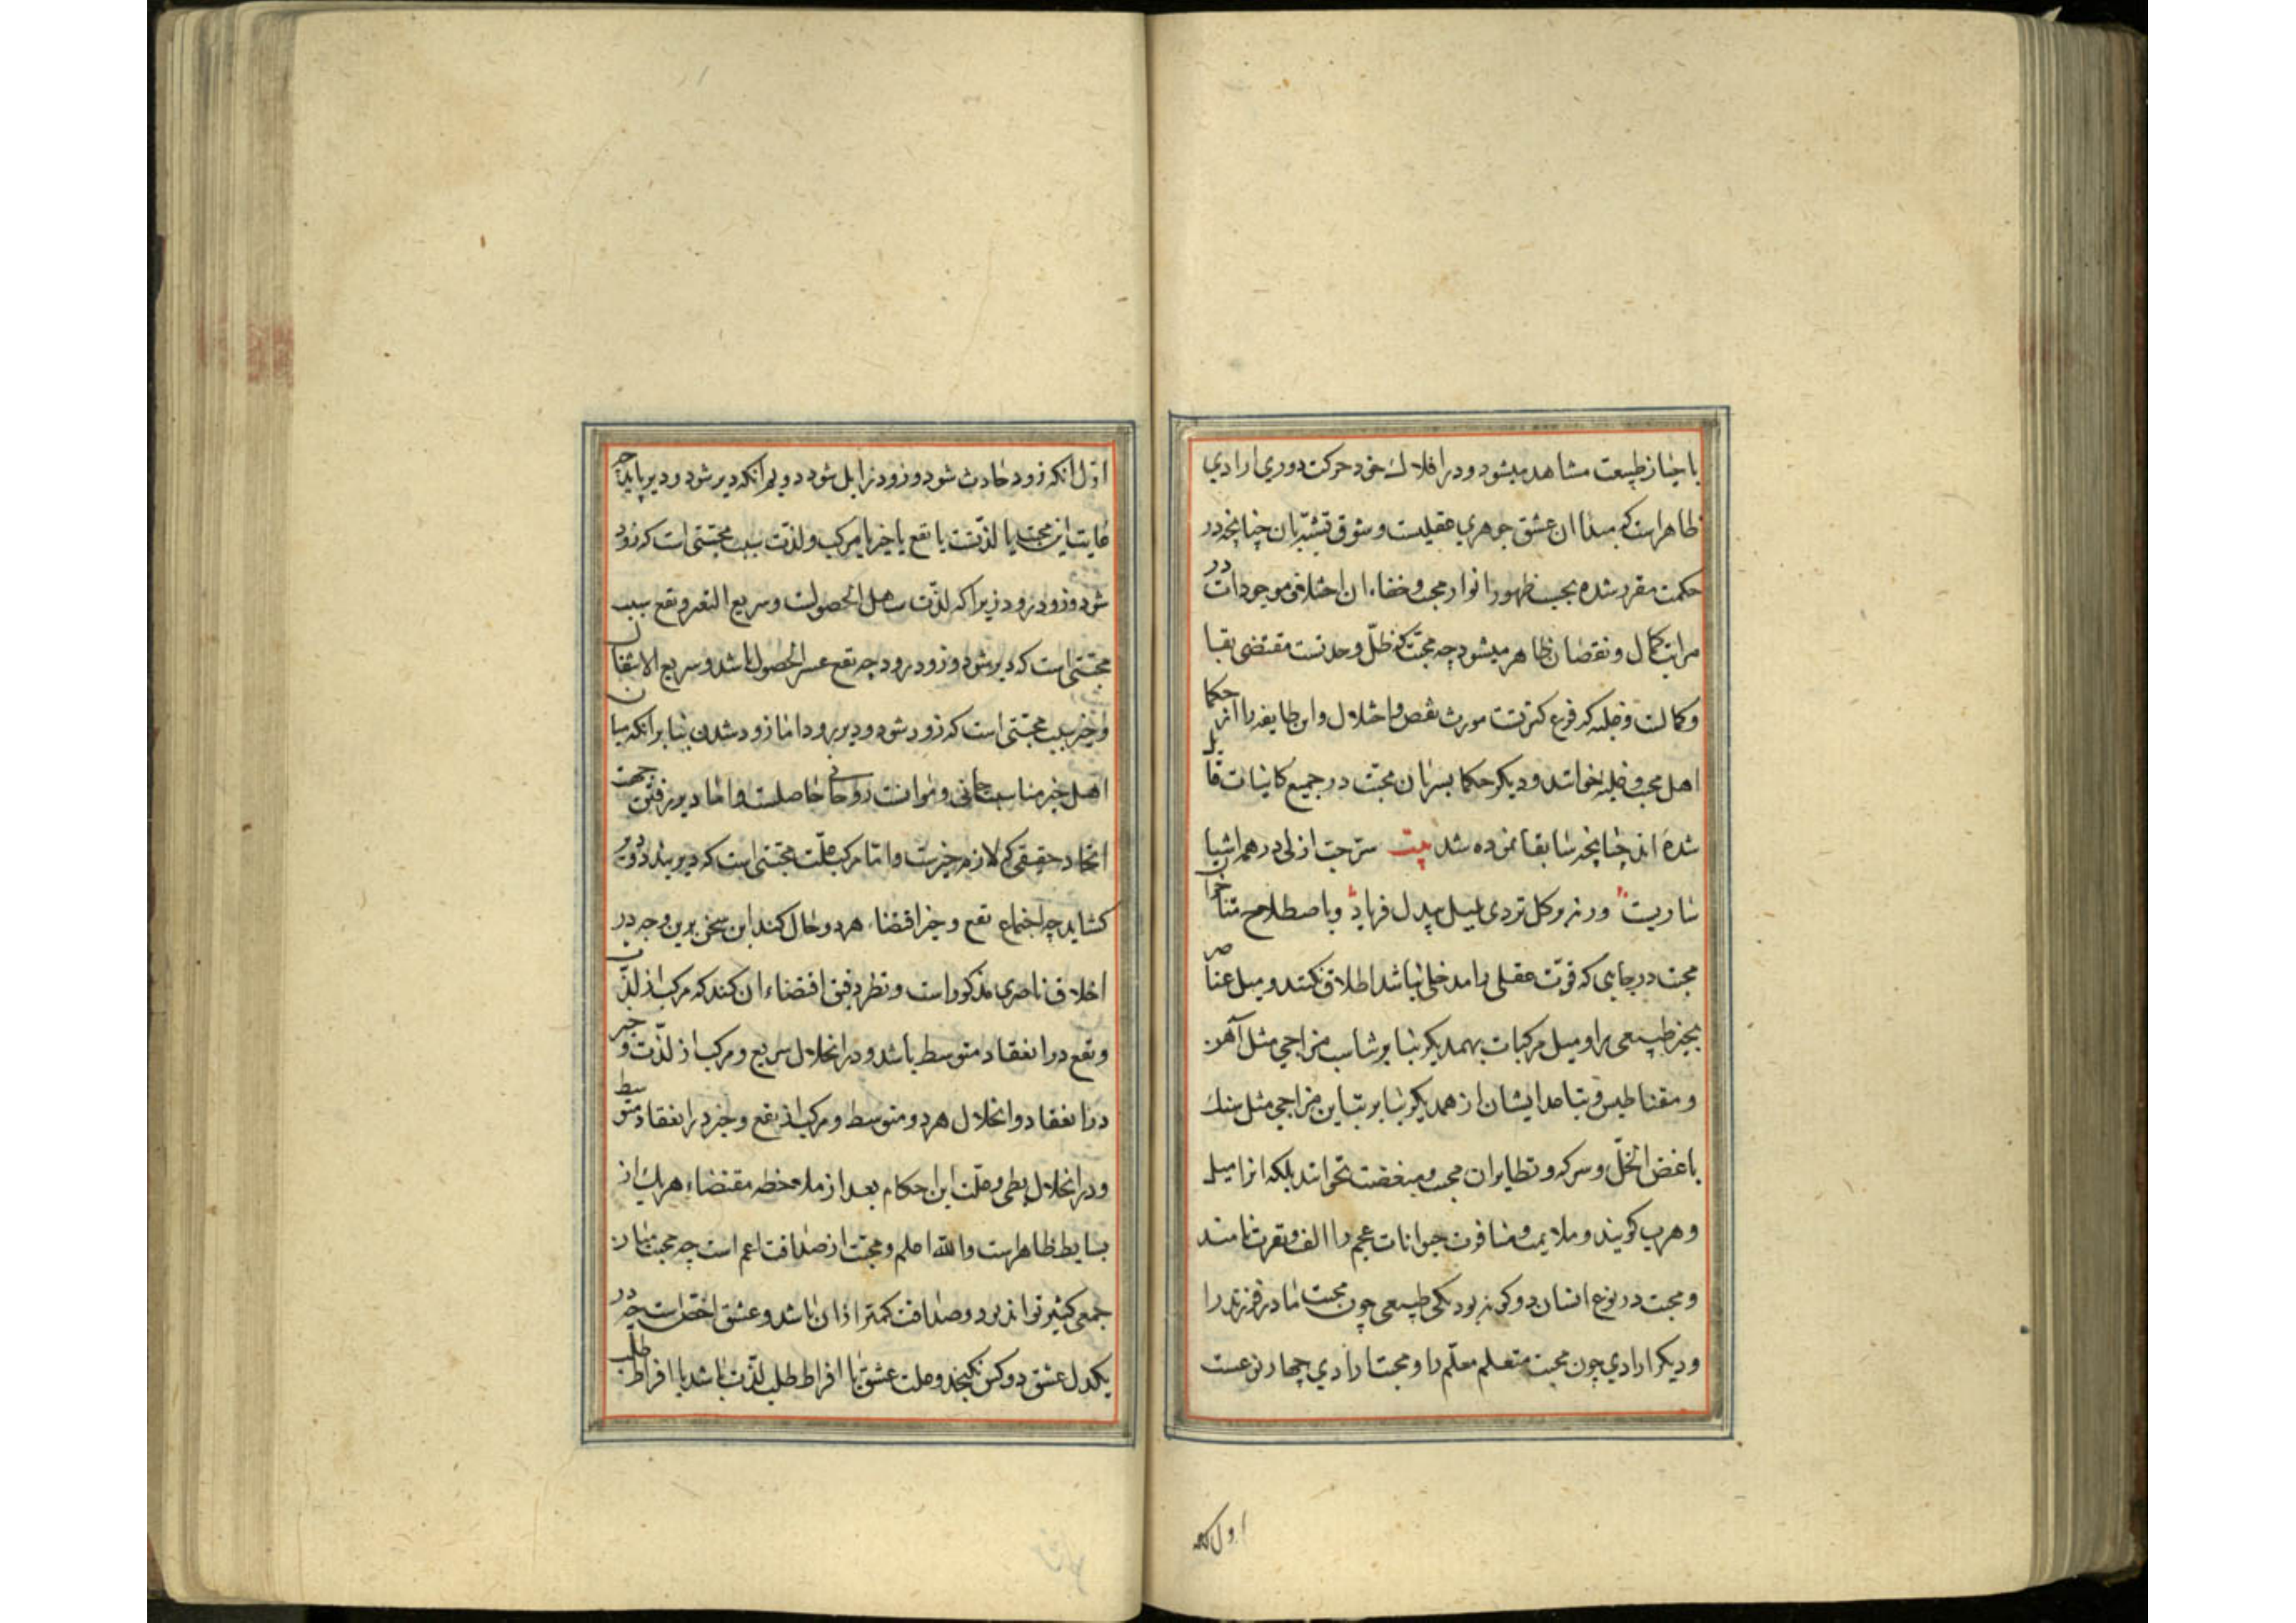 باحیاز طبیعت مشاهد میشود و در افلاک خود حرکت دوری ارادی
ظاهرست که مبدا ان عشق جوهری عقلیست و شوق تشبّه بان چنانچه در
حکمت مقرر شده بحسب ظهور انوار محبت و خفاء ان اختلاف موجودات در
مراتب کمال و نقصان ظاهر میشود چه محبّت که ظلّ وحدتست مقتضی بقا
و کمالست و غلبه که فرع کثرتست مورث نقص و اختلال و این طایفه را از حکما
اهل محبت و غلبه خوانند و دیگر حکما بسریان محبّت در جمیع کاینات قایل
شده اند چنانچه سابقا نموده شد بیت سرّ حبّ ازلی در همه اشیا
ساریست ورنه بر گل نزدی بلبل بیدل فریاد و باصطلاح متاخران
محبت در جایی که قوّت عقلی را مدخلی نباشد اطلاق نکنند و میل عناصر
بحیز طبیعی را و میل مرکبات بهمدیگر بنابر تناسب مزاجی مثل آهن
و مقناطیس و تباعد ایشان از همدیگر بنابر تباین مزاجی مثل سنک
باغض الخلّ و سرکه و نظایر ان محبت و مبغضت نخوانند بلکه انرا میل
و هرب کویند و ملایمت و منافرت حیوانات عجم را الف و نفرت نامند
و محبت در نوع انسان دو کونه بود یکی طبیعی چون محبت مادر فرزند را
و دیکر ارادی چون محبت متعلم معلّم را و محبت ارادی چهار نوعست
اول انکه
اوّل انکه زود حادث شود و زود زایل شود دویم انکه دیر شود و دیر پاید چه
غایت این محبت یا لذّتست یا نفع یا خیر یا مرکب و لذّت سبب محبّتی است که زود
شود و زود رود زیرا که لذّت سهل الحصولست و سریع التغیر و نفع سبب
محبّتی است که دیر شود و زود رود چه نفع عسر الحصول باشد و سریع الانتقان
و خیر سبب محبّتی است که زود شود و دیر رود اما زود شدن بنابر انکه میان
اهل خیر مناسبت جانی و موانست روحانی حاصلست و اما دیر رفتن جهت
اتحاد حقیقی که لازم خیرست و امّا مرکب علّت محبّتی است که دیر بندد و دیر
کشاید چه اجتماع نفع و خیر اقتضاء هر دو حال کند این سخن برین وجه در
اخلاق ناصری مذکور است و نظر دقیق اقتضاء ان کند که مرکب از لذّن
و نفع در انعقاد متوسط باشد و در انحلال سریع و مرکب از لذّت و خیر
در انعقاد و انحلال هر دو متوسط و مرکب از نفع و خیر در انعقاد متوسط
و در انحلال بطی و علّت این احکام بعد از ملاحظه مقتضاء هر یک از
بسایط ظاهرست والله اعلم و محبّت از صداقت اعم است چه محبت میان
جمعی کثیر تواند بود و صداقت کمتر از ان باشد و عشق اخصّ است چه در
یکدل عشق دو کس نکنجد و علت عشق یا افراط طلب لذّت باشد یا افراط طلب